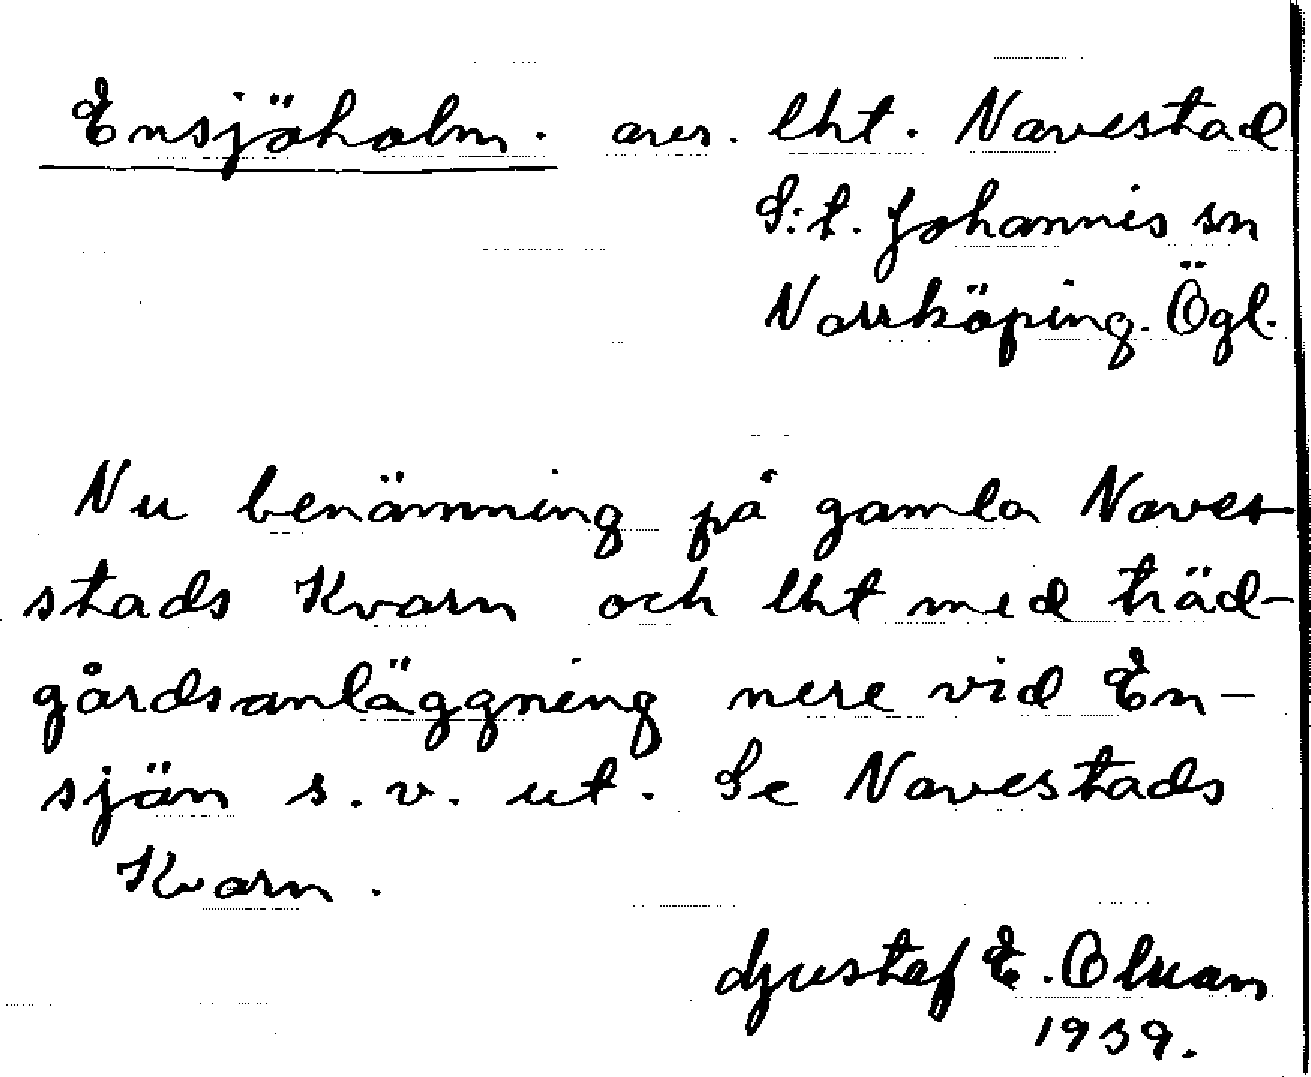 Ensjöholm. avs. lht. Navestad
S:t. Johannis sn
Norrköping. Ögl.
Nu benämning på gamla Naves-
stads Kvarn och lht med träd-
gårdsanläggning nere vid En-
sjön s.v. ut. Se Navestads
Kvarn.
Gustaf E. Olsson
1939.